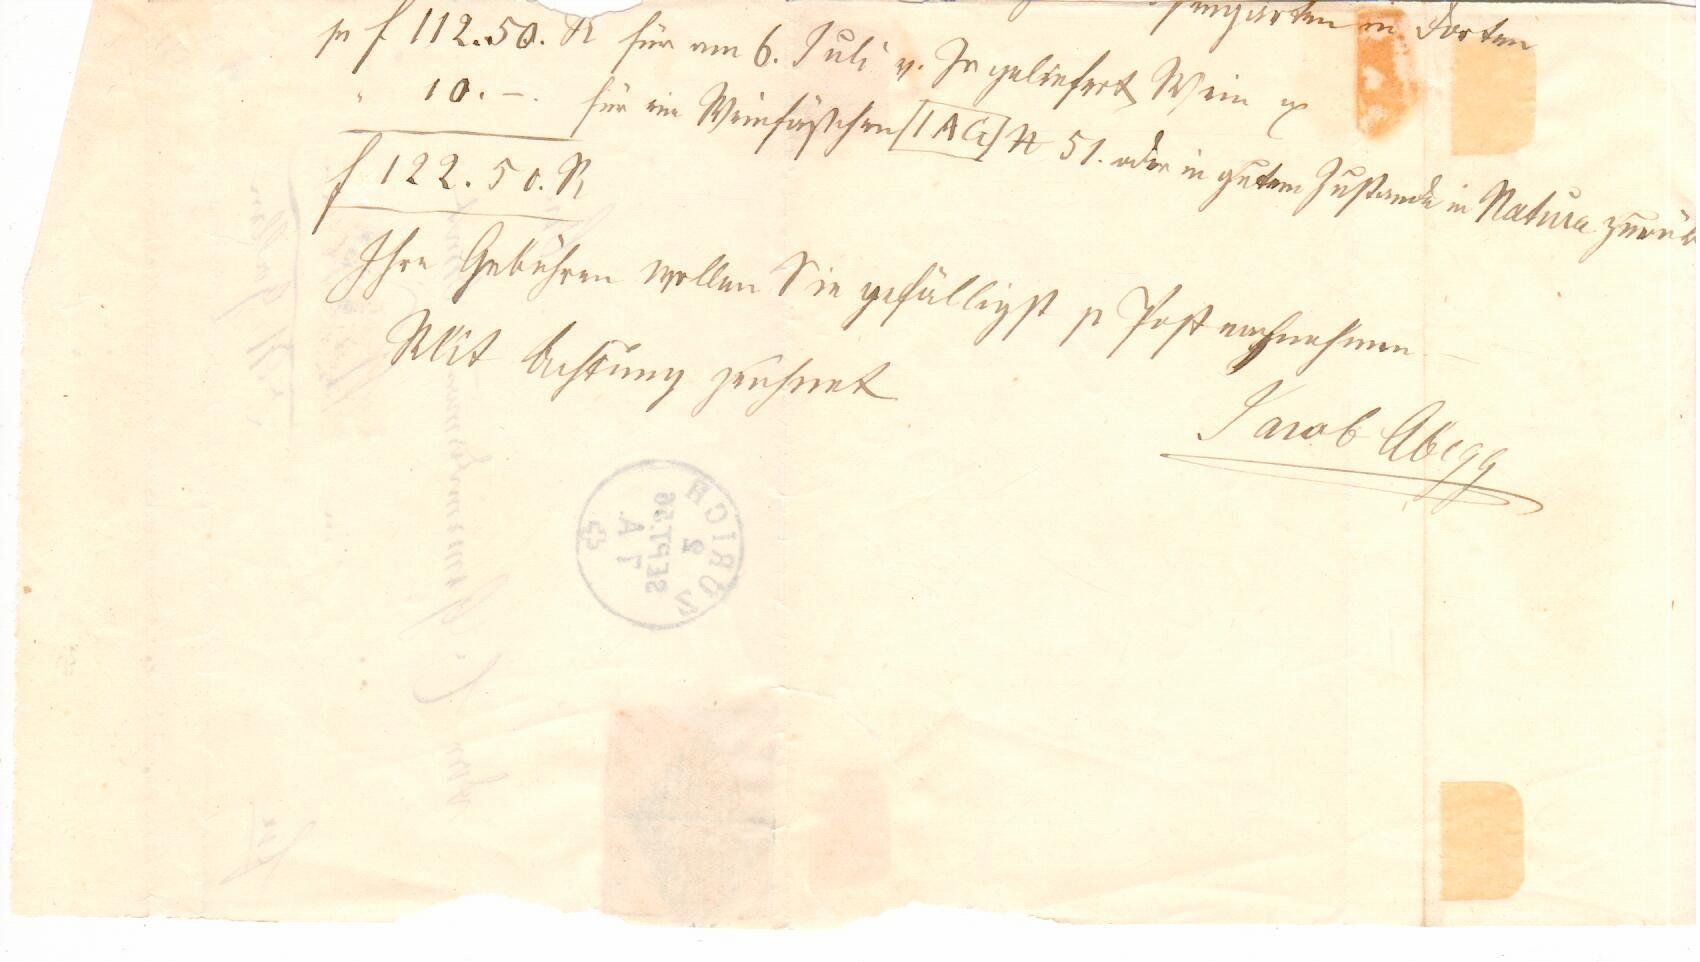 in Dorten
pr f 112.50. R für am 6. Juli v. Js geliefert Wein
" 10. –. für ein Weinfässchen IAG № 51. oder in gutem Zustande in Natura zurük
f 122.50. R
Ihre Gebühren wollen Sie gefälligst pr Post nachnehmen
Mit Achtung zeichnet
Jacob Abegg
ZÜRICH
2
SEPT. 56
A.
7